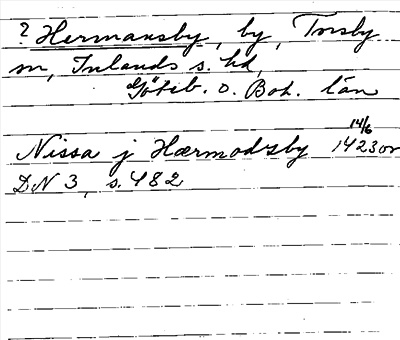 ? Hermansby, by, Torsby
sn, Inlands s. hd,
Göteb. o. Boh. län
14/6
Nissa j Hærmodsby 1423 or
DN 3, s. 482